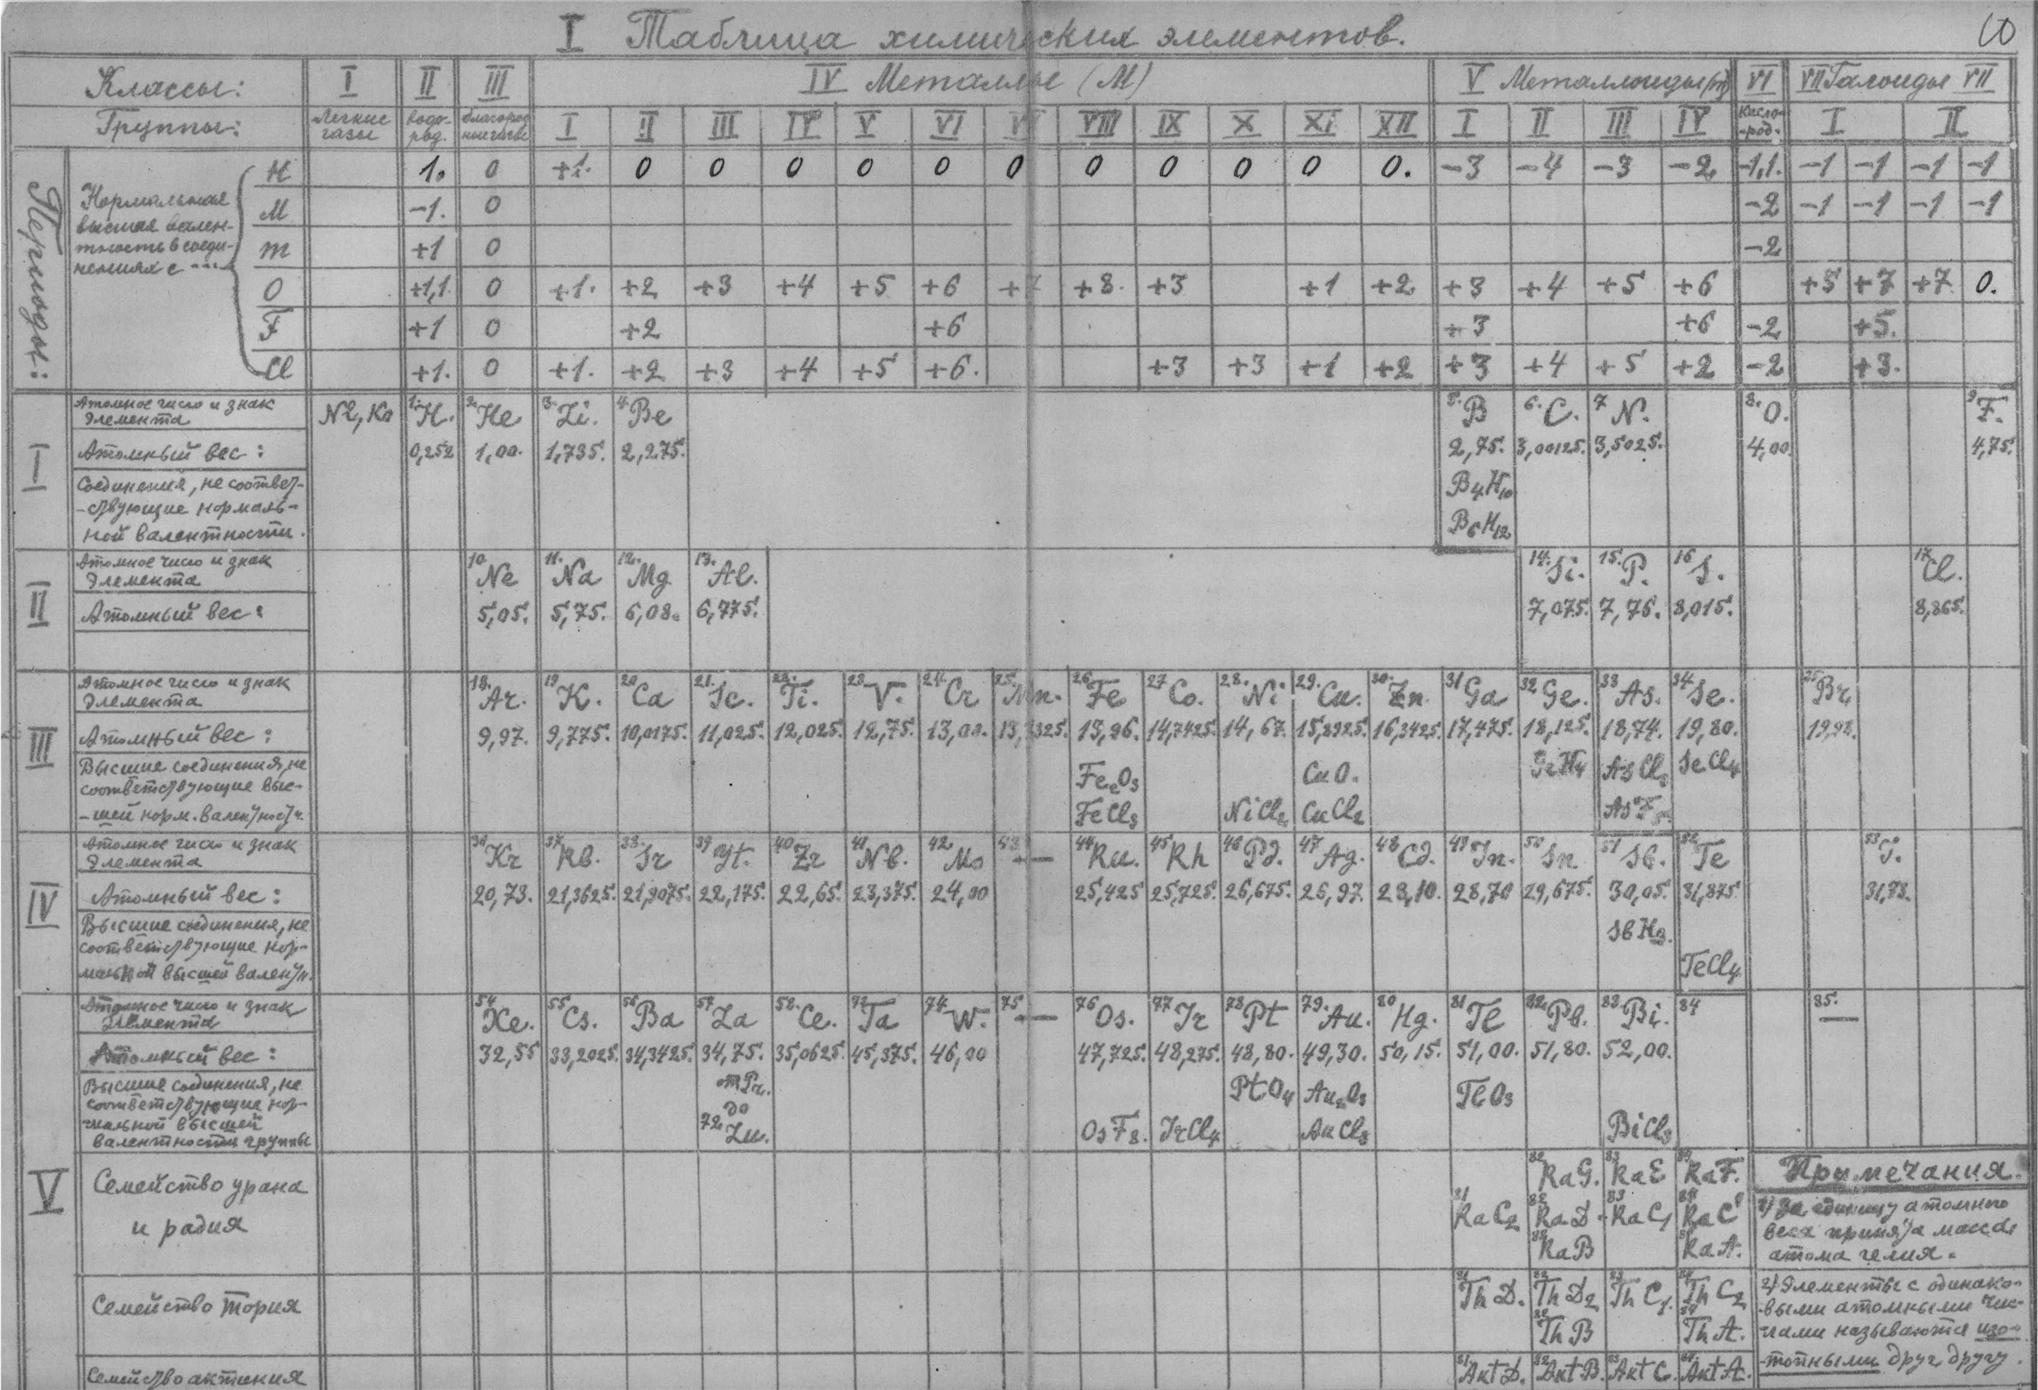 I Таблица химических элементов.
Классы: I II III IV Металлы (М) V Металлоиды (m) VI VII Галоиды VII
Группы: Легкие газы водо-род. благород ные газы I II III IV V VI VII VIII IX X XI XII I II III IV Кисло-род. I II
Периоды:
Нормальная
высшая вален-
тность в соеди-
нениях с ---
H 1. 0 +1. 0 0 0 0 0 0 0 0 0 0 0. -3 -4 -3 -2 -1,1. -1 -1 -1 -1
M -1. 0 -2 -1 -1 -1 -1
m +1 0 -2
O +1,1. 0 +1. +2 +3 +4 +5 +6 +7 +8. +3 +1 +2 +3 +4 +5 +6 +5 +7 +7 0.
F +1 0 +2 +6 +3 +6 -2 +5.
Cl +1. 0 +1. +2 +3 +4 +5 +6. +3 +3 +1 +2 +3 +4 +5 +2 -2 +3.
I
Атомное число и знак
Элемента
1. H. 2. He 3. Li. 4. Be 5. B 6. C. 7 N. 8. O. 9 F.
Атомный вес: 0,252 1,00. 1,735. 2,275. 2,75. 3,00125. 3,5025. 4,00 4,75.
Соединения, не соответ-
-ствующие нормаль-
ной валентности.
B4H10
B6H12
II
Атомное число и знак
Элемента
10 Ne 11. Na 12. Mg 13. Al. 14. Si. 15. P. 16 S. 17 Cl.
Атомный вес: 5,05. 5,75. 6,08. 6,775. 7,075. 7,76. 8,015. 8,865.
III
Атомное число и знак
Элемента
18. Ar. 19 K. 20 Ca 21. Sc. 22. Ti. 23 V. 24. Cr 25. Mn. 26 Fe 27 Co. 28. Ni 29. Cu. 30. Zn. 31 Ga 32 Ge. 33 As. 34 Se. 35 Br
Атомный вес: 9,97. 9,775. 10,0175. 11,025. 12,025. 12,75. 13,00. 13,96. 14,7425. 14,67. 15,8925. 16,3425. 17,475. 18,125. 18,74. 19,80. 19,98.
Высшие соединения, не
соответствующие выс-
-шей норм. валентности.
Fe2O3 CuO. GeH4 AsCl3 SeCl4
FeCl3 NiCl2 CuCl2 AsF5.
IV
Атомное число и знак
Элемента
36 Kr 37 Rb. 38. Sr 39 Yt. 40 Zr 41 Nb. 42 Mo 43 — 44 Ru. 45 Rh 46 Pd. 47 Ag. 48 Cd. 49 In. 50 Sn 51 Sb. 52 Te 53 J.
Атомный вес: 20,73. 21,3625. 21,9075. 22,175. 22,65. 23,375. 24,00 25,425 25,725. 26,675. 26,97. 28,10. 28,70 29,675. 30,05. 31,875. 31,73.
Высшие соединения, не
соответствующие нор-
мальной высшей валентн.
SbH3.
TeCl4
V
Атомное число и знак
Элемента
54 Xe. 55 Cs. 56 Ba 57 La 58. Ce. 73 Ta 74 W. 75 — 76 Os. 77 Ir 78 Pt 79. Au. 80 Hg. 81 Tl 82 Pb. 83 Bi. 84 85. —
Атомный вес: 32,55 33,2025. 34,3425. 34,75. 35,0625. 45,375. 46,00 47,725. 48,275. 48,80. 49,30. 50,15. 51,00. 51,80. 52,00.
Высшие соединения, не
соответствующие нор-
мальной высшей
валентности группы
от Pr.
до
72 Lu.
PtO4 Au2O3 TlO3
OsF8. IrCl4 AuCl3 BiCl3
Семейство урана
и радия
82 RaG. 83 RaE 84 RaF.
81 RaC2 82 RaD 83 RaC1 84 RaC'
82 RaB 84 RaA.
Семейство тория
81 ThD. 82 ThD2 83 ThC1. 84 ThC2
82 ThB 84 ThA.
Семейство актиния
81 AktD. 82 AktB. 83 AktC. 84. AktA.
Примечания.
1) За единицу атомного
веса принята масса
атома гелия.
2) Элементы с одинако-
выми атомными чис-
лами называются изо-
-топными друг другу.